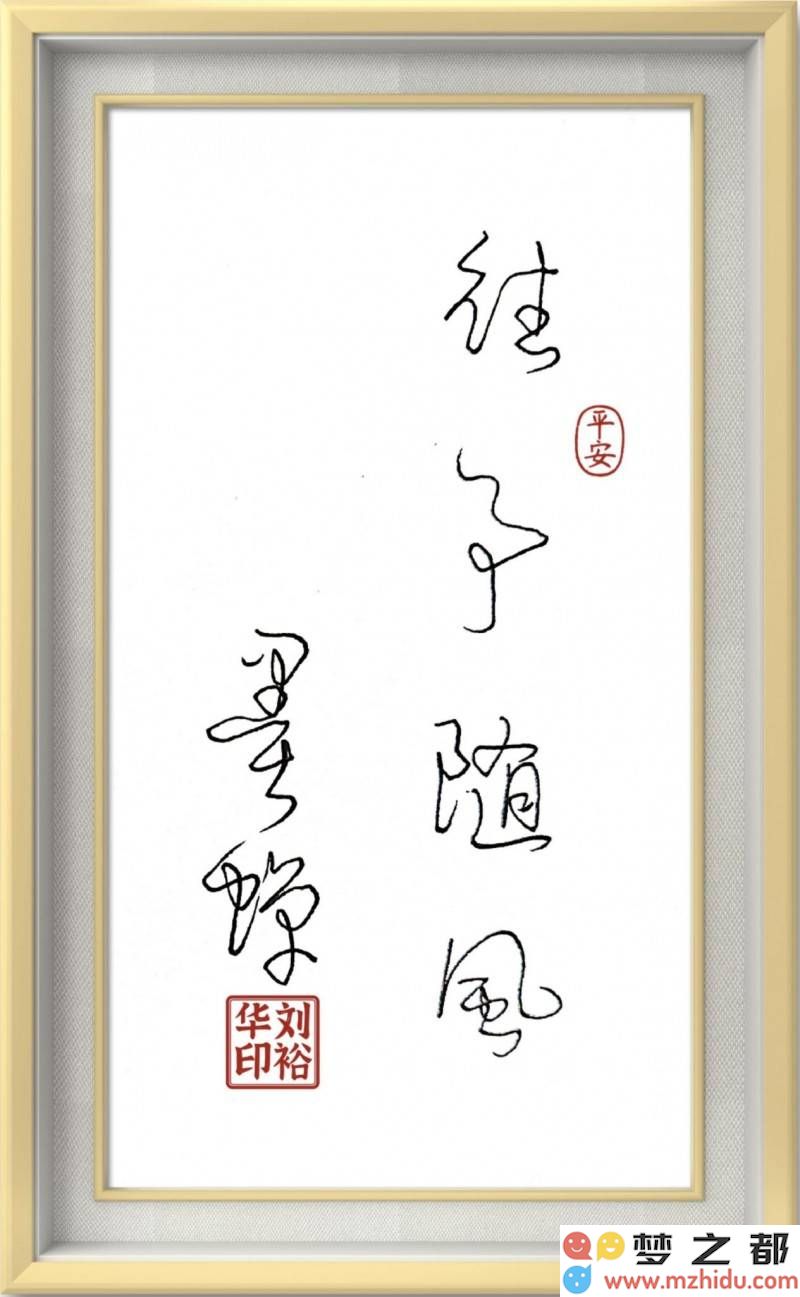 往事随風
平安
墨蝉
刘裕
华印
梦之都
www.mzhidu.com